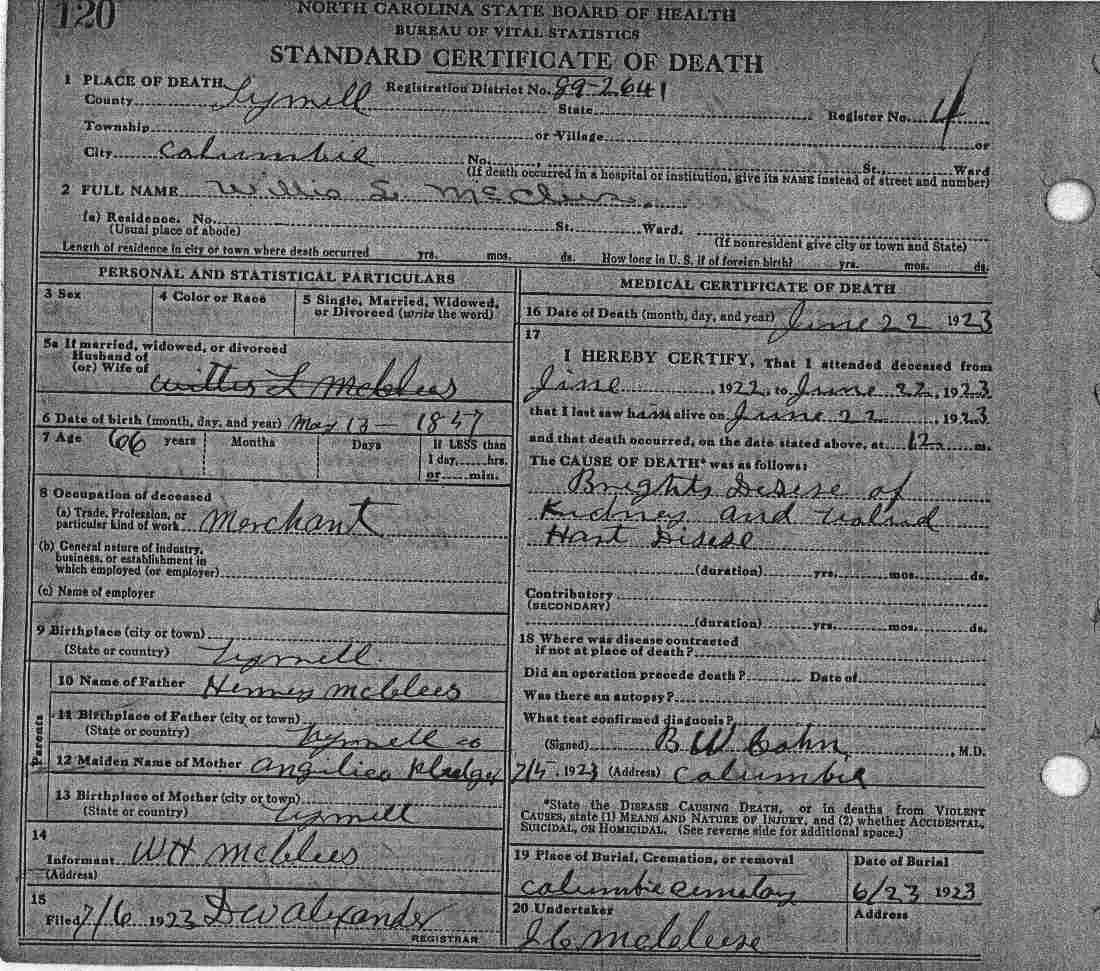 120
NORTH CAROLINA STATE BOARD OF HEALTH
BUREAU OF VITAL STATISTICS
STANDARD CERTIFICATE OF DEATH
1 PLACE OF DEATH
Registration District No. 89-2641
County Tyrrell State Register No. 4
Township or Village or
City Columbia No. , St., Ward
(If death occurred in a hospital or institution, give its NAME instead of street and number)
2 FULL NAME Willis L McClees
(a) Residence. No. St. Ward.
(Usual place of abode) (If nonresident give city or town and State)
Length of residence in city or town where death occurred yrs. mos. ds. How long in U. S. if of foreign birth? yrs. mos. ds.
PERSONAL AND STATISTICAL PARTICULARS
3 Sex
4 Color or Race
5 Single, Married, Widowed,
or Divorced (write the word)
5a If married, widowed, or divorced
Husband of
(or) Wife of Willis L McClees
6 Date of birth (month, day, and year) May 13 - 1857
7 Age 66 years Months Days If LESS than
1 day, hrs.
or min.
8 Occupation of deceased
(a) Trade, Profession, or
particular kind of work Merchant
(b) General nature of industry,
business, or establishment in
which employed (or employer)
(c) Name of employer
9 Birthplace (city or town)
(State or country) Tyrrell
Parents
10 Name of Father Henney McClees
11 Birthplace of Father (city or town)
(State or country) Tyrrell co
12 Maiden Name of Mother Angilica Pledger
13 Birthplace of Mother (city or town)
(State or country) Tyrrell
14
Informant WH McClees
(Address)
15
Filed 7/6 1923 D W Alexander
REGISTRAR
MEDICAL CERTIFICATE OF DEATH
16 Date of Death (month, day, and year) June 22 1923
17
I HEREBY CERTIFY, That I attended deceased from
June , 1922, to June 22, 1923
that I last saw him alive on June 22 , 1923
and that death occurred, on the date stated above, at 12 m.
The CAUSE OF DEATH* was as follows:
Brights Disese of
Kidney and
Hart Disese
(duration) yrs. mos. ds.
Contributory
(SECONDARY)
(duration) yrs. mos. ds.
18 Where was disease contracted
if not at place of death?
Did an operation precede death? Date of
Was there an autopsy?
What test confirmed diagnosis?
(Signed) B W Cahn, M.D.
7/5 1923 (Address) Columbia
*State the DISEASE CAUSING DEATH, or in deaths from VIOLENT
CAUSES, state (1) MEANS AND NATURE OF INJURY, and (2) whether ACCIDENTAL,
SUICIDAL, OR HOMICIDAL. (See reverse side for additional space.)
19 Place of Burial, Cremation, or removal
Columbia Cemetary
Date of Burial
6/23 1923
20 Undertaker
J C McCleese
Address